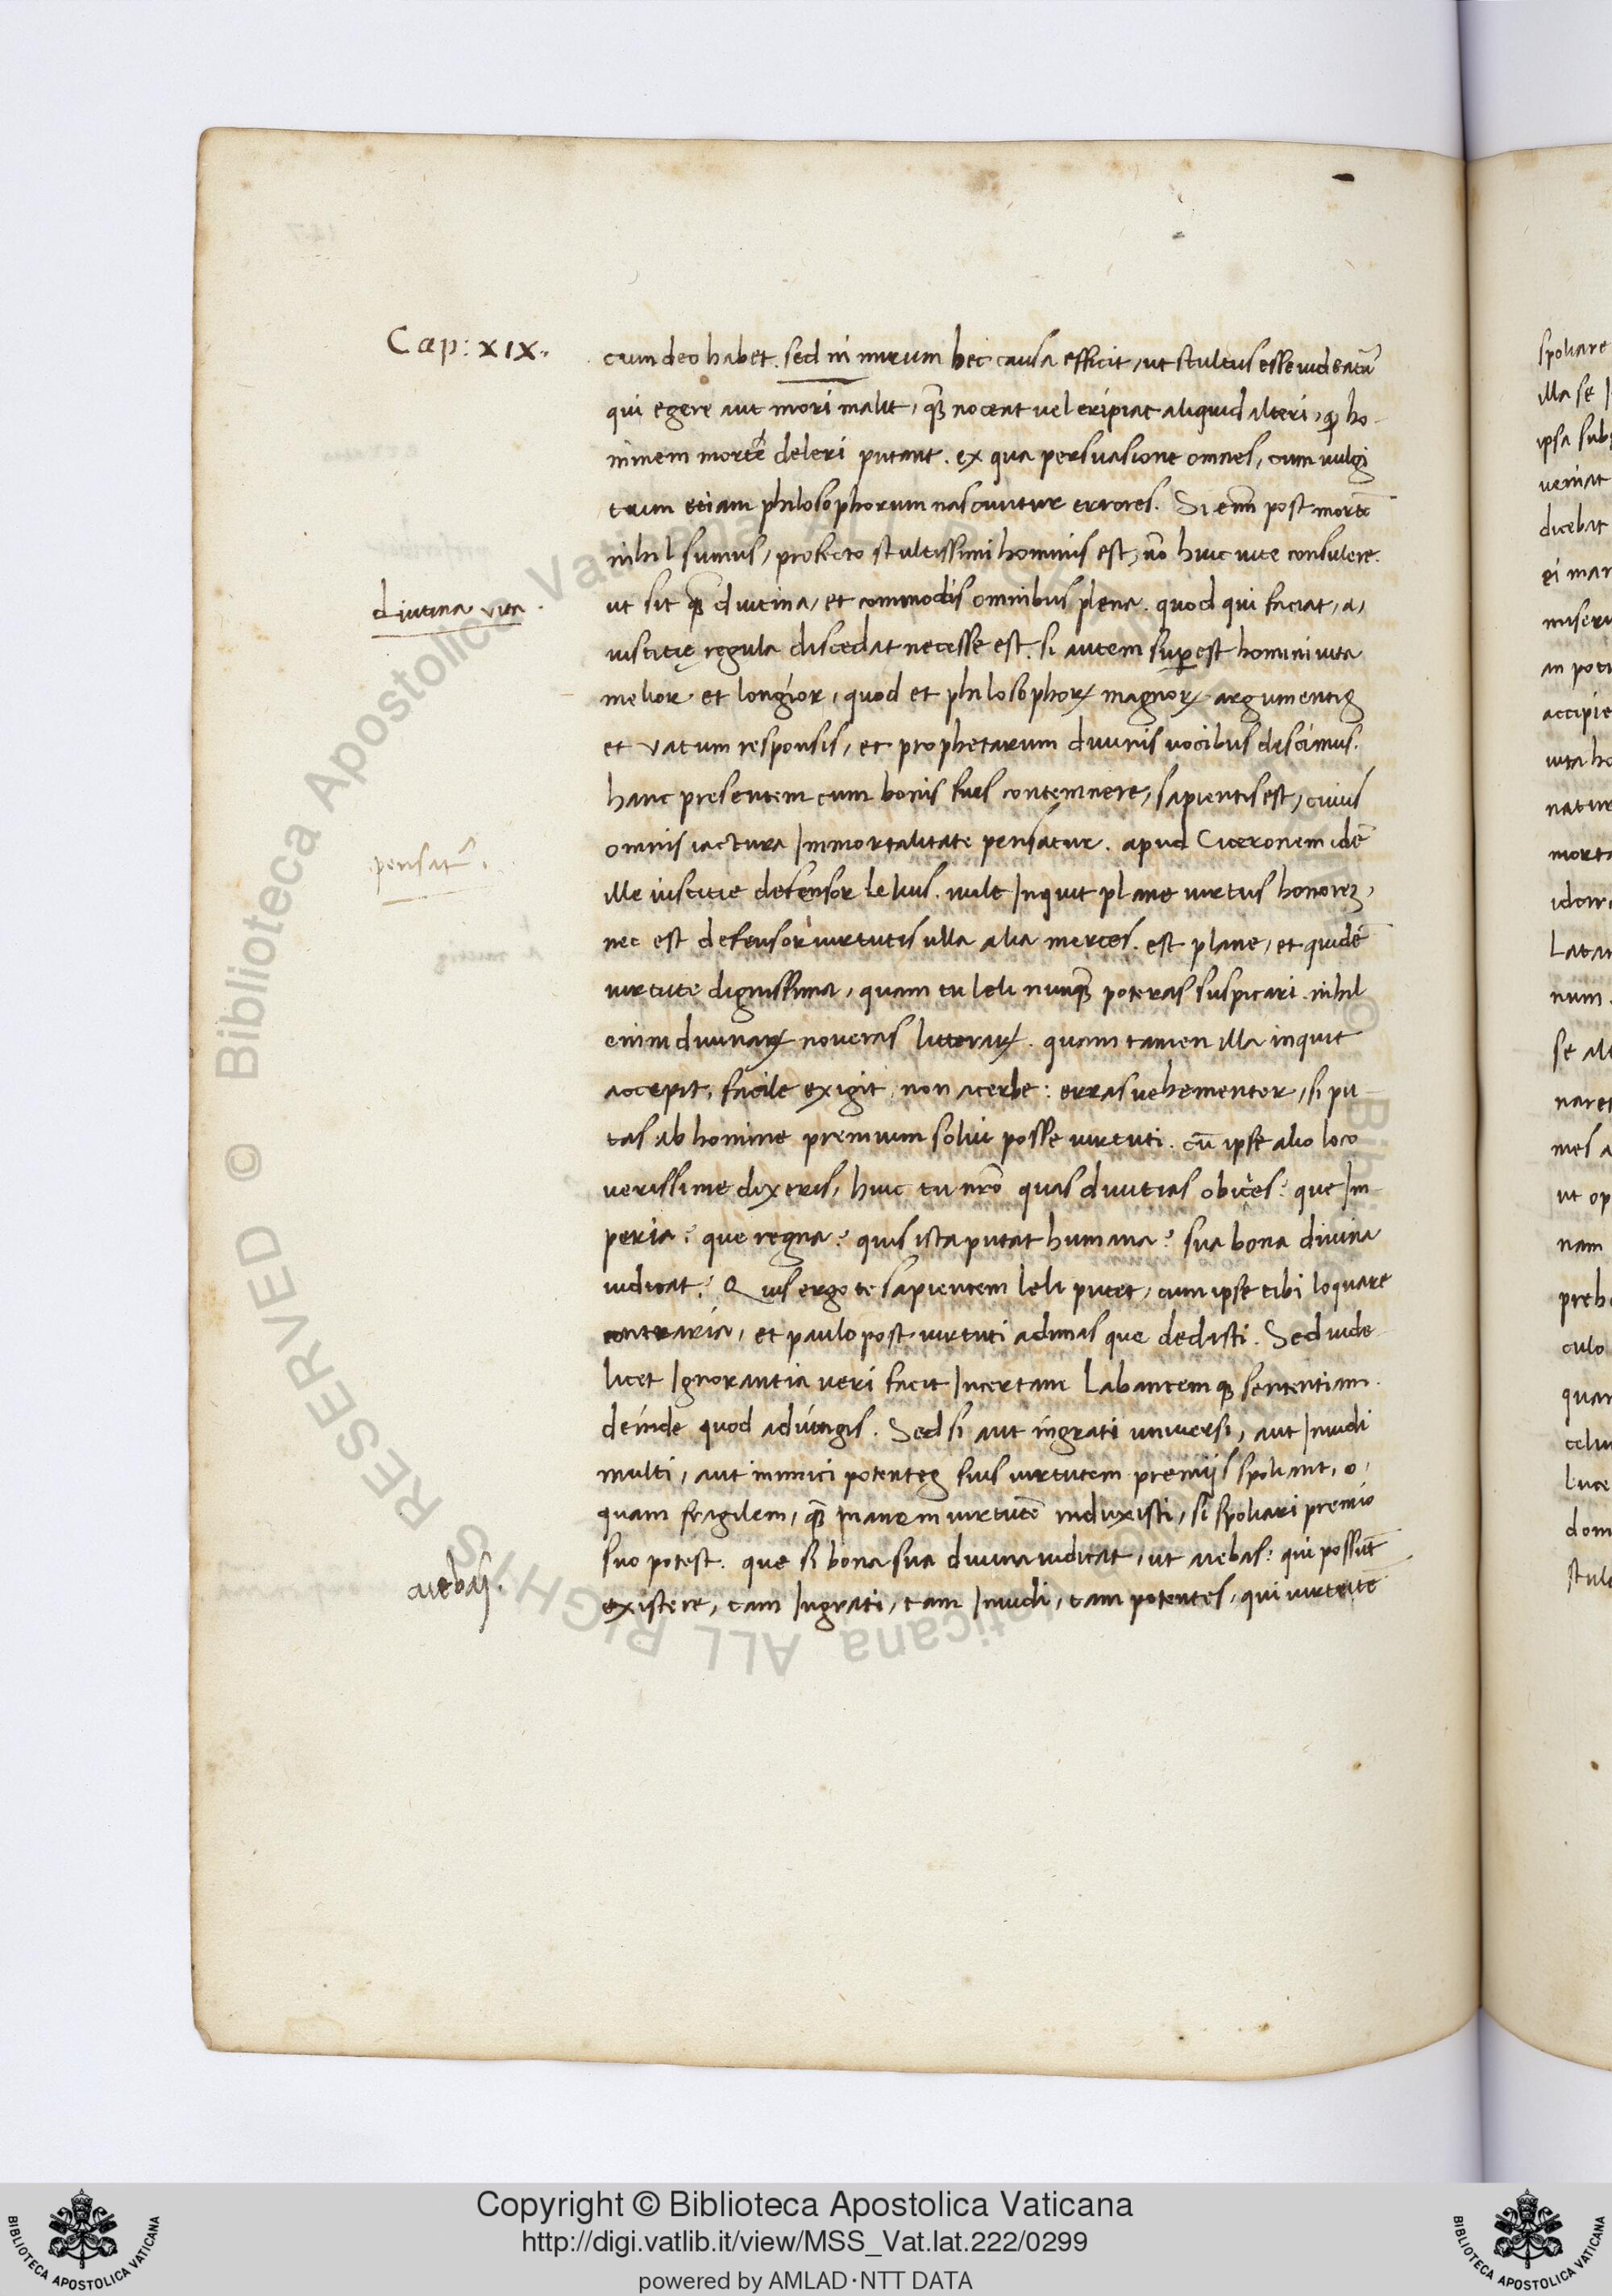 Cap: XIX.
cum deo habet. sed ni mirum hec causa efficit, ut stultus esse videat᷑
qui egere aut mori malit, qȝ̄ noceat vel eripiat aliquid alteri, qꝫ ho-
minem morte deleri putant. ex qua persuasione omnes, cum vulgi
tum etiam philosophorum nascuntur errores. Si enī post mortē
nihil sumus, profecto stultissimi hominis est, nō huic vite consulere.
diutina vita.
ut sit qȝ̄ diutina, et commodis omnibus plena. quod qui faciat, a,
iustitię regula discedat necesse est. si autem suꝑest homini vita
melior et longior, quod et philosophoꝝ magnoꝝ argumentis
et vatum responsis, et prophetarum divinis vocibus discimus.
hanc presentem cum bonis suis contemnere, sapientis est, cuius
omnis iactura Immortalitate pensatur. apud Ciceronem idē
pensat᷑.
ille iustitie defensor lelius. vult Inquit plane virtus honorem,
nec est defensor virtutis ulla alia merces. est plane, et quidē
virtute dignissima, quam tu leli nunqȝ̄ poteras suspicari. nihil
enim divinaꝝ noveras litteraꝝ. quam tamen illa inquit
accepit, facile exigit, non acerbe: erras vehementer, si pu-
tas ab homine premium solvi posse virtuti. cū ipse alio loco
verissime dixeris, huic tu viro quas divitias obices? que Im-
peria? que regna? quis ista putat humana? sua bona divina
iudicat? Quis ergo te sapientem leli putet, cum ipse tibi loquare
contraria, et paulo post virtuti adimas que dedisti. Sed vide-
licet Ignorantia veri facit Incertam labantemqꝫ sententiam.
deinde quod adiungis. Sed si aut ingrati universi, aut Invidi
multi, aut inimici potentes suis virtutem premiis spoliant, o,
quam fragilem, qȝ̄ Inanem virtutē induxisti, si spoliari premio
suo potest. que si bona sua divina iudicat, ut aiebas: qui possūt
aiebas.
existere, tam Ingrati, tam Invidi, tam potentes, qui virtutē
spoliare
illa se
ipsa sub
veniat
dicebat
ei mar
miseri
an poti
accipie
vita ho
natur
morta
idcirc
Labar
num.
se alt
naret
mes a
ut op
nam
prehe
culo
quar
celu
luce
dom
stult
© Biblioteca Apostolica Vaticana ALL RIGHTS RESERVED
BIBLIOTECA APOSTOLICA VATICANA
Copyright © Biblioteca Apostolica Vaticana
http://digi.vatlib.it/view/MSS_Vat.lat.222/0299
powered by AMLAD·NTT DATA
BIBLIOTECA APOSTOLICA VATICANA